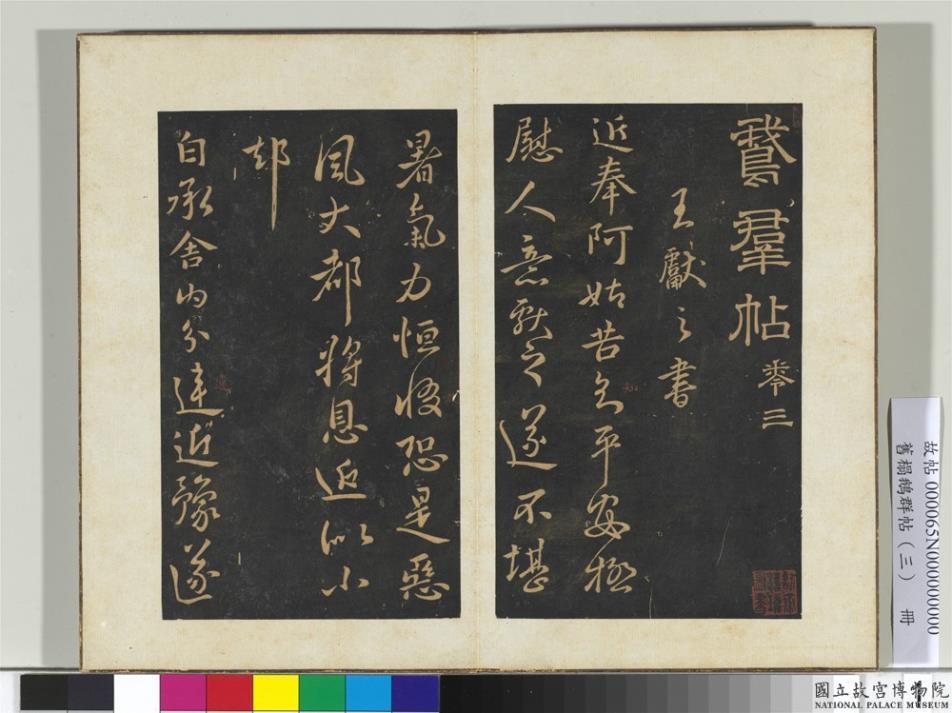 鵞羣帖 卷三
王獻之書
近奉阿姑告知平安極
慰人意獻之遂不堪
暑氣力恒惙恐是惡
風大都將息近似小
却
白承舍內分違近豫遂
故帖000065N000000000
舊榻鵝群帖(三) 冊
國立故宮博物院
NATIONAL PALACE MUSEUM